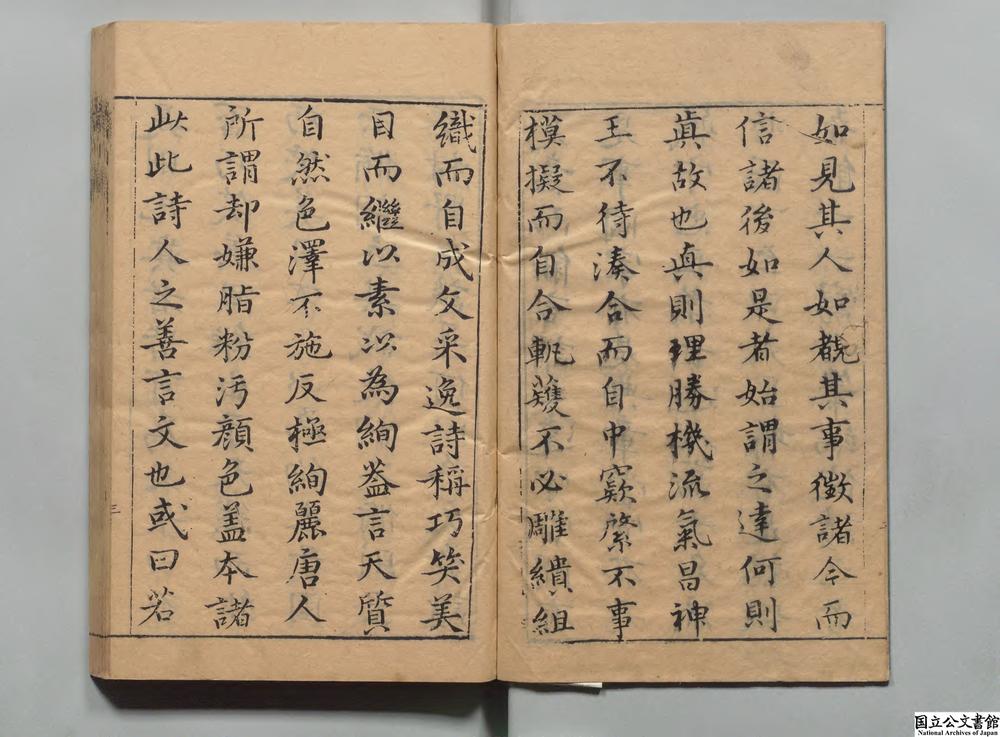 如見其人如覩其事徵諸今而
信諸後如是者始謂之達何則
眞故也眞則理勝機流氣昌神
王不待湊合而自中窾綮不事
模擬而自合軌蒦不必雕繢組
織而自成文采逸詩稱巧笑美
目而繼以素以為絢葢言天質
自然色澤不施反極絢麗唐人
所謂却嫌脂粉汚顔色盖本諸
此此詩人之善言文也或曰若
三
国立公文書館
National Archives of Japan